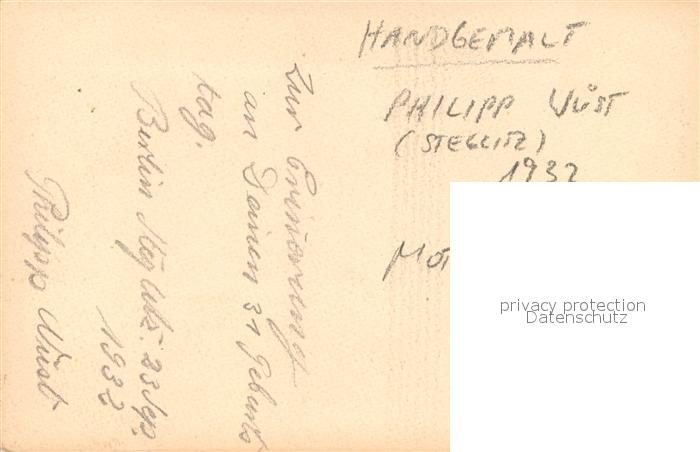 HANDGEMALT
PHILIPP WÜST
(STEGLITZ)
1932
Zur Erinnerung
an Deinen 31 Geburts
tag.
Berlin Steglitz. 23 Sep.
1932
Philipp Wüst
privacy protection
Datenschutz